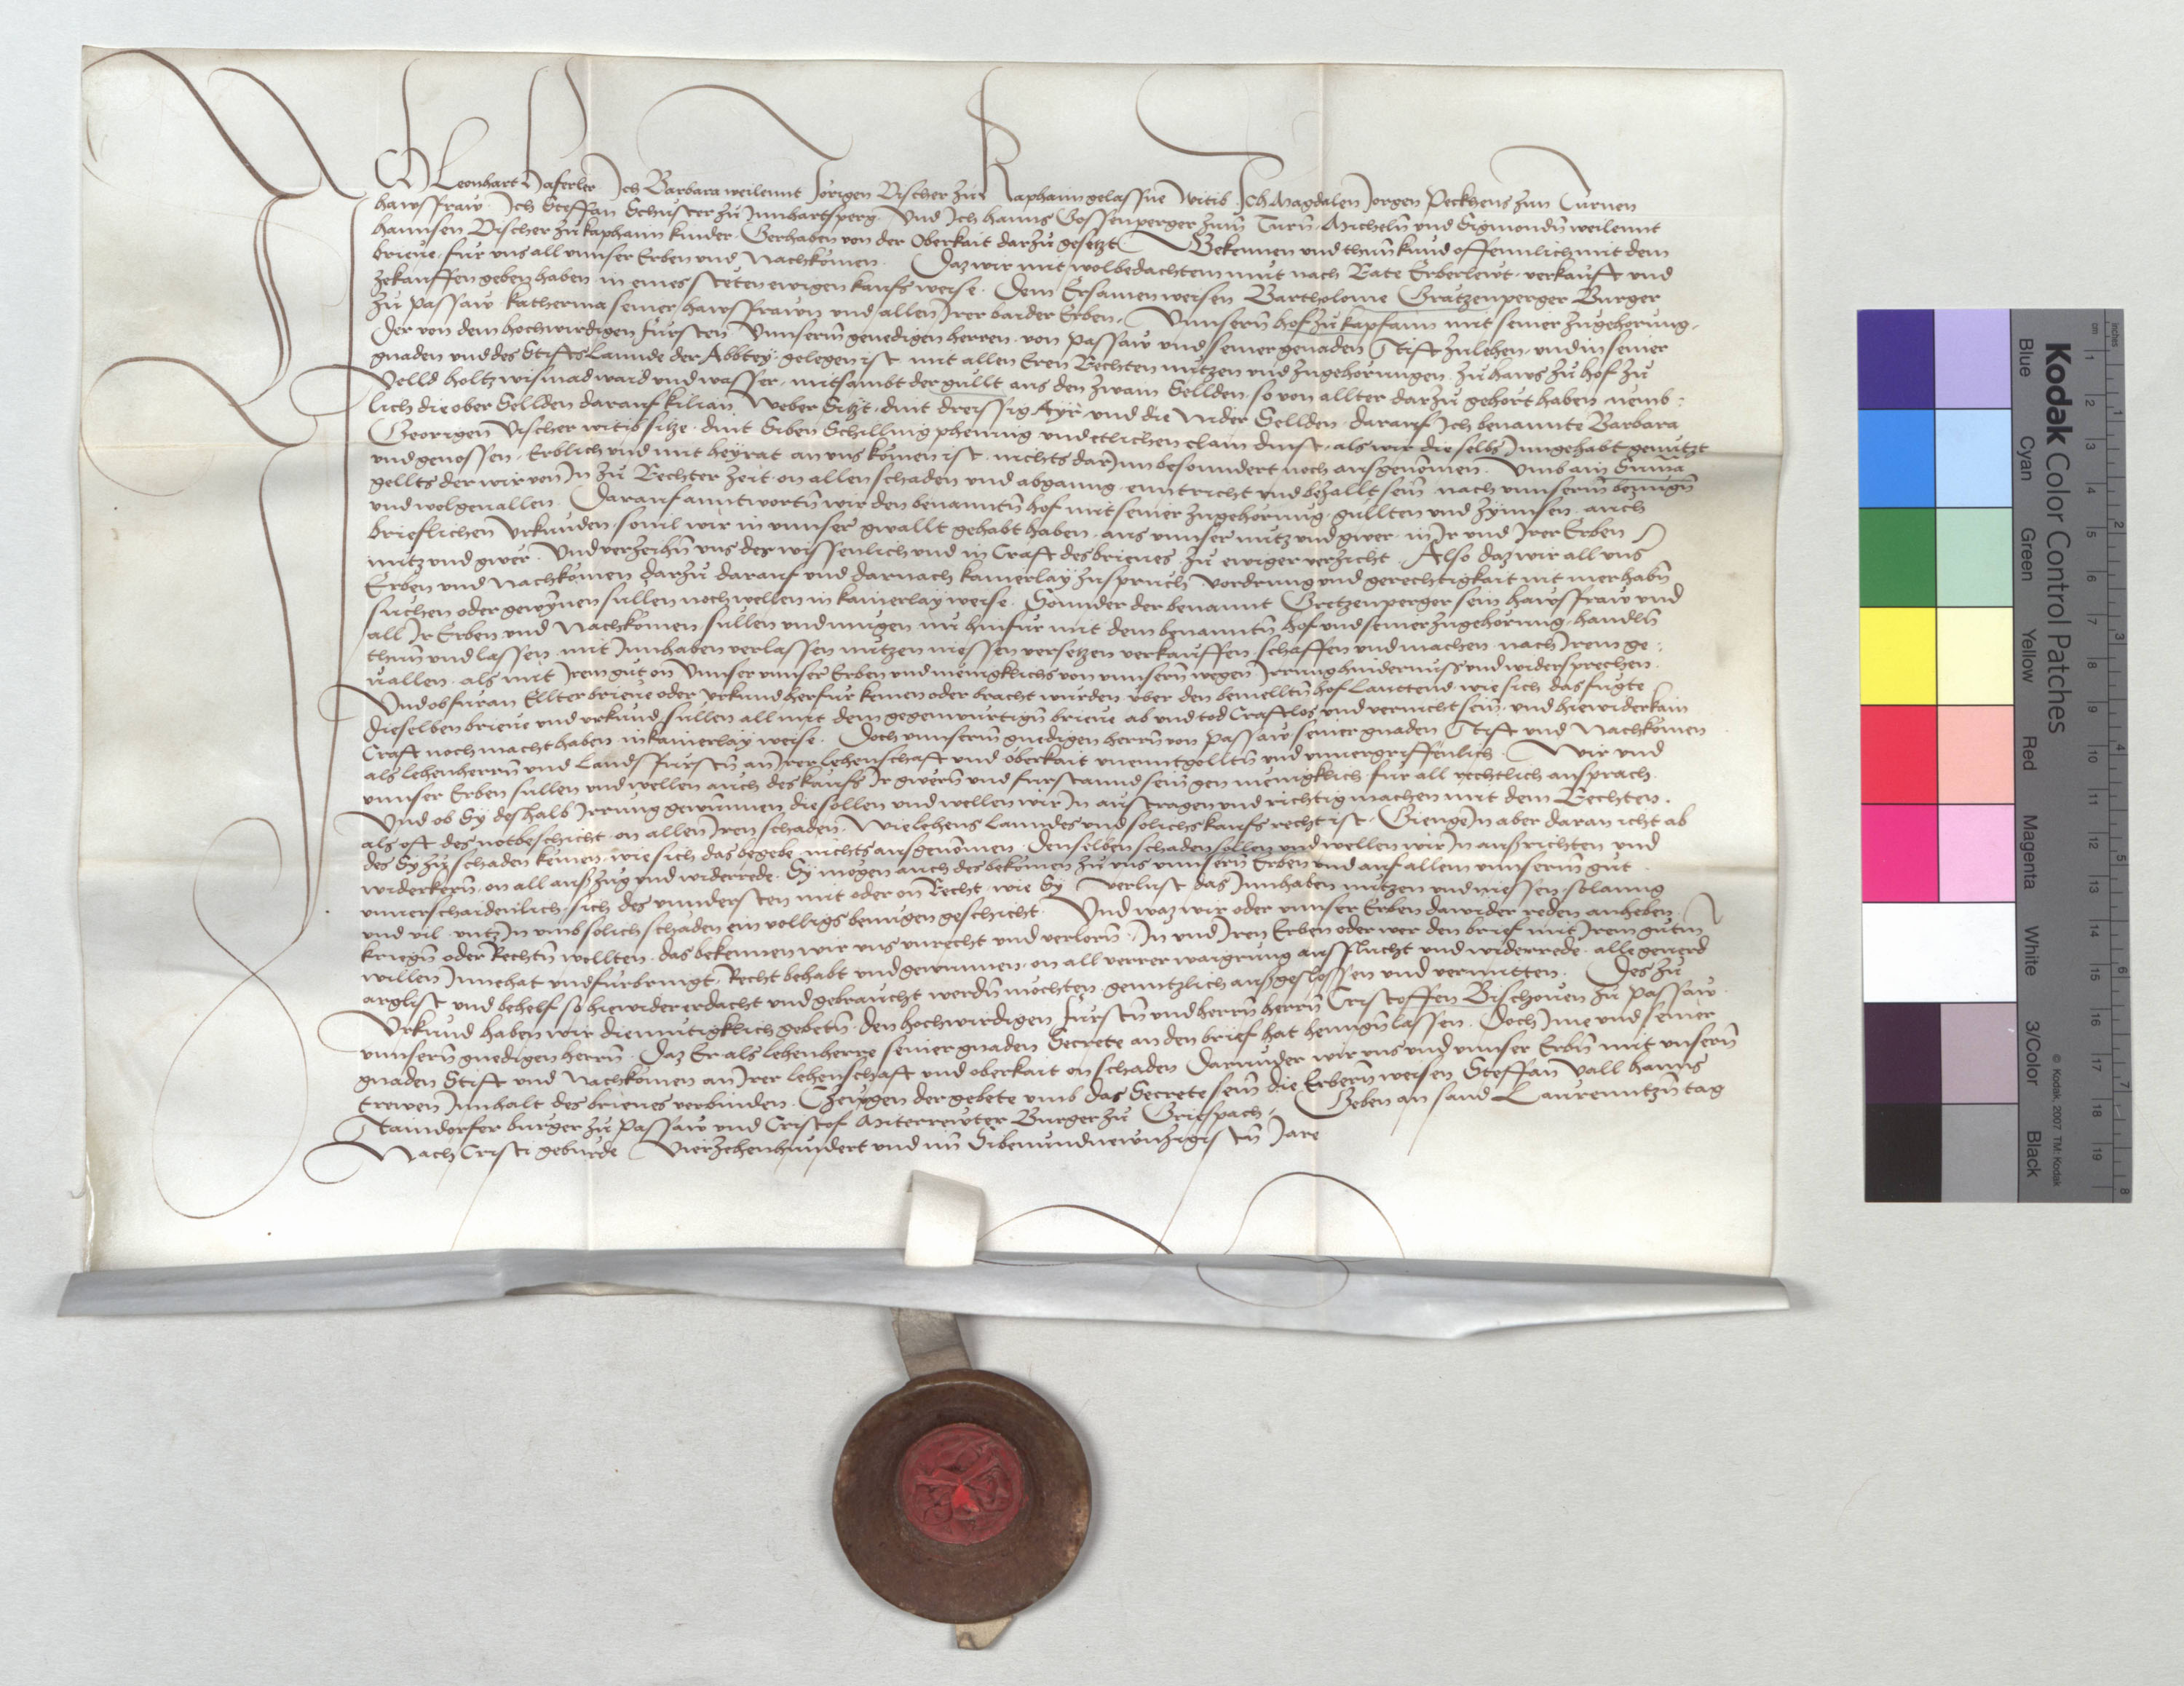 Ich Leonhart Haferler Ich Barbara weilennt Jorigen Vischer zu Kaphaim gelassne Witib Ich Magdalen Jorgen Peckhens zun Turnen
hawsfraw. Ich Steffan Schuster zu Innhartsperg Und Ich hanns Gossenperger zum Turn Michelm und Sigmonden weilennt
hannsen Vischer zu kaphaim kinder. Gerhaben von der Oberkait darzu gesetzt Bekennen und thun kund offennlich mit dem
brieve, fur uns all unnser Erben und Nachkomen. Daz wir mit wolbedachtem mut nach Rate Erberlewt, verkaufft und
zekauffen geben haben in eines steten ewigen kaufs weise. Dem Ersamen weisen Bartholome Gratzenperger Burger
zu Passaw Katherina seiner hawsfrawn und allen Irer baider Erben, Unnsern hof zu kapfaim mit seiner Zugehorung,
Der von dem hochwirdigen Fursten Unnserm genedigen herren von Passaw und seiner genaden Stift zulehen, und in seiner
gnaden und des Stifts Lannde der Abbtey gelegen ist mit allen Eren Rechten nutzen und zugehorungen zu haws zu hof zu
Velld holtz wismad waid und wasser, mitsambt der gullt aus den zwain Sellden, so von allter darzu gehort haben nemb:
lich die ober Sellden darauf kilian Weber Sitzt, dint dreissig Ayr und die Nider Sellden, darauf Ich benannte Barbara
Georigen Vischer witib sitze, dint Siben Schilling phening und etlichen clain dinst, als wir die selbs Inngehabt genutzt
und genossen, Erblich und mit heyrat an uns komen ist, nichts darInn besonndert noch ausgenomen. Umb ain Suma
gellts der wir von In zu Rechter zeit, on allen schaden und abganng, enntricht und bezallt sein nach unnserm benugen
und wolgevallen. Darauf anntworten wir den benannten hof mit seiner zugehorung, gullten und zynnsen auch
brieflichen Urkunden, sovil wir in unnser gwallt gehabt haben, aus unnser nutz und gwer, in Ir und Irer Erben
nutz und gwer. Und verzeihn uns des wissenlich und in Craft des brieves, zu ewiger verzicht. Also daz wir all uns
Erben und Nachkomen darzu darauf und darnach kainerlay zuspruch vordrung und gerechtigkait nit mer haben
suchen oder gewynnen sullen noch wellen in kainerlay weise. Sonnder der benannt Gretzenperger sein hawsfraw und
all Ir Erben und Nachkomen sullen und mugen nu hinfur mit dem benannten hof und seiner zugehorung, handln
thun und lassen, mit Innhaben verlassen nutzen niessen versetzen verkauffen, schaffen und machen nach Irem ge:
vallen, als mit Irem gut on Unnser unnser Erben und menigklichs von unnsern wegen Irrung hindernuss und widersprechen.
Und ob furan Ellter brieve oder Urkund herfur kemen oder bracht wurden uber den bemellten hof Lauttend wie sich das fugte
dieselben brieve und urkund sullen all mit dem gegenwurtigen brieve ab und tod Craftlos und vernicht sein, und hiewider kain
Craft noch macht haben in kainerlay weise. Doch unnserm gnedigen herrn von Passaw seiner gnaden Stift und Nachkomen
als lehenherrn und Landsfursten an Irer lehenschaft und oberkait unenntgollten und unvergriffenlich. Wir und
unnser Erben sullen und wellen auch des kaufs Ir gwern und furstannd sein gen menigklich fur all rechtlich ansprach.
Und ob Sy deshalb Irrung gewunnen, die sollen und wellen wir In austragen und richtig machen mit dem Rechten,
als oft des not beschicht, on allen Iren schaden, Wie lehens lanndes und solichs kaufs recht ist. Gienge In aber daran icht ab
des Sy zu schaden kemen, wie sich das begebe, nichts ausgenomen. Denselben schaden sollen und wellen wir In ausrichten und
widerkern, on all auszug und widerrede. Sy mogen auch des bekomen zu uns unnsern Erben und auf allem unnserm gut
unverschaidenlich, sich des unndersten mit oder on Recht, wie Sy verlust, das Innhaben nutzen und niessen, solanng
und vil untz In umb solich schaden ein vollligs benugen geschicht. Und waz wir oder unnser Erben dawider reden anheben
kriegen oder Rechten wellten, das bekennen wir uns unrecht und verlorn. In und Iren Erben oder wer den brief mit Irem gutem
willen Innehat und furbringt, Recht behabt und gewunnen, on all verrer waigrung ausflucht und widerrede, alle geverd
arglist und behelf so hiewider erdacht und gebraucht werden mochten, genntzlich ausgeslossen und vermitten. Des zu
Urkund haben wir diemutigklich gebeten den hochwirdigen Fursten und herrn herrn Cristoffen Bischoven zu Passaw
unnsern gnedigen herrn. Daz Er als lehenherre seiner gnaden Secrete an den brief hat henngen lassen. Doch Ime und seiner
gnaden Stift und Nachkomen an Irer lehenschaft und oberkait on schaden Darunder wir uns und unnser Erben mit unsern
trewen Innhalt des brieves verbinden. Gezeugen der gebete umb das Secrete sein die Erbern weisen Steffan Vall hanns
Staindorfer burger zu Passaw und Cristof Miterrewter Burger zu Griespach, Geben an sand Laurenntzen tag
Nach Cristi geburde Vierzehenhundert und im Sibenundnewnzigisten Jare
Kodak Color Control Patches
Blue Cyan Green Yellow Red Magenta White 3/Color Black
© Kodak, 2007 TM: Kodak
inches 1 2 3 4 5 6 7 8
cm 1 2 3 4 5 6 7 8 9 10 11 12 13 14 15 16 17 18 19